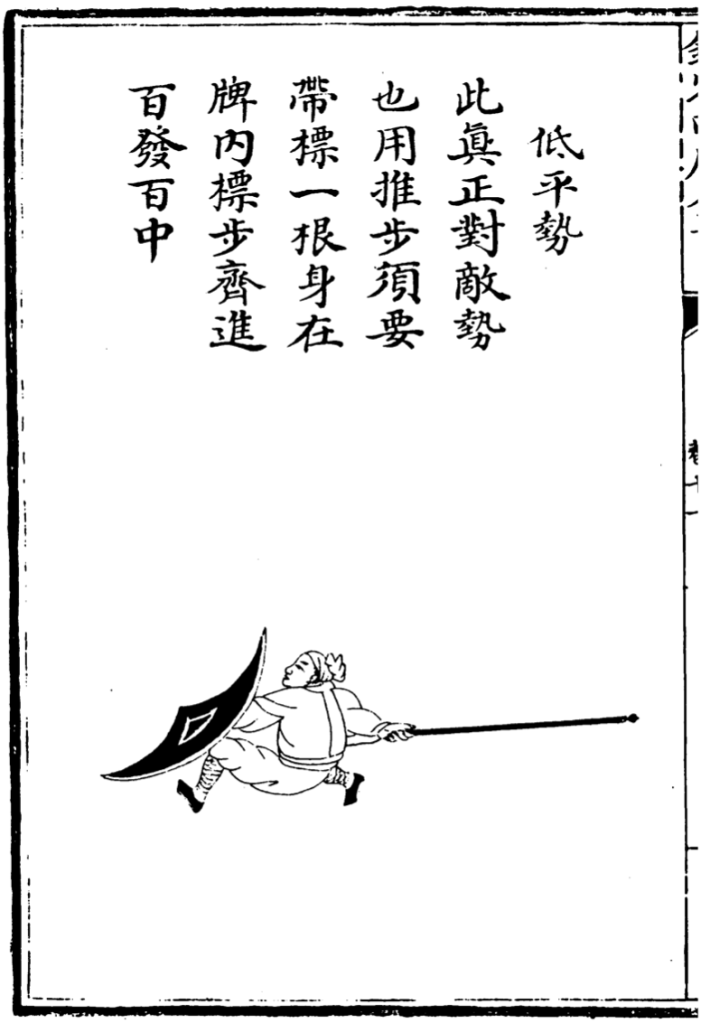 低平勢
此眞正對敵勢
也用推步須要
帶標一根身在
牌内標步齊進
百發百中